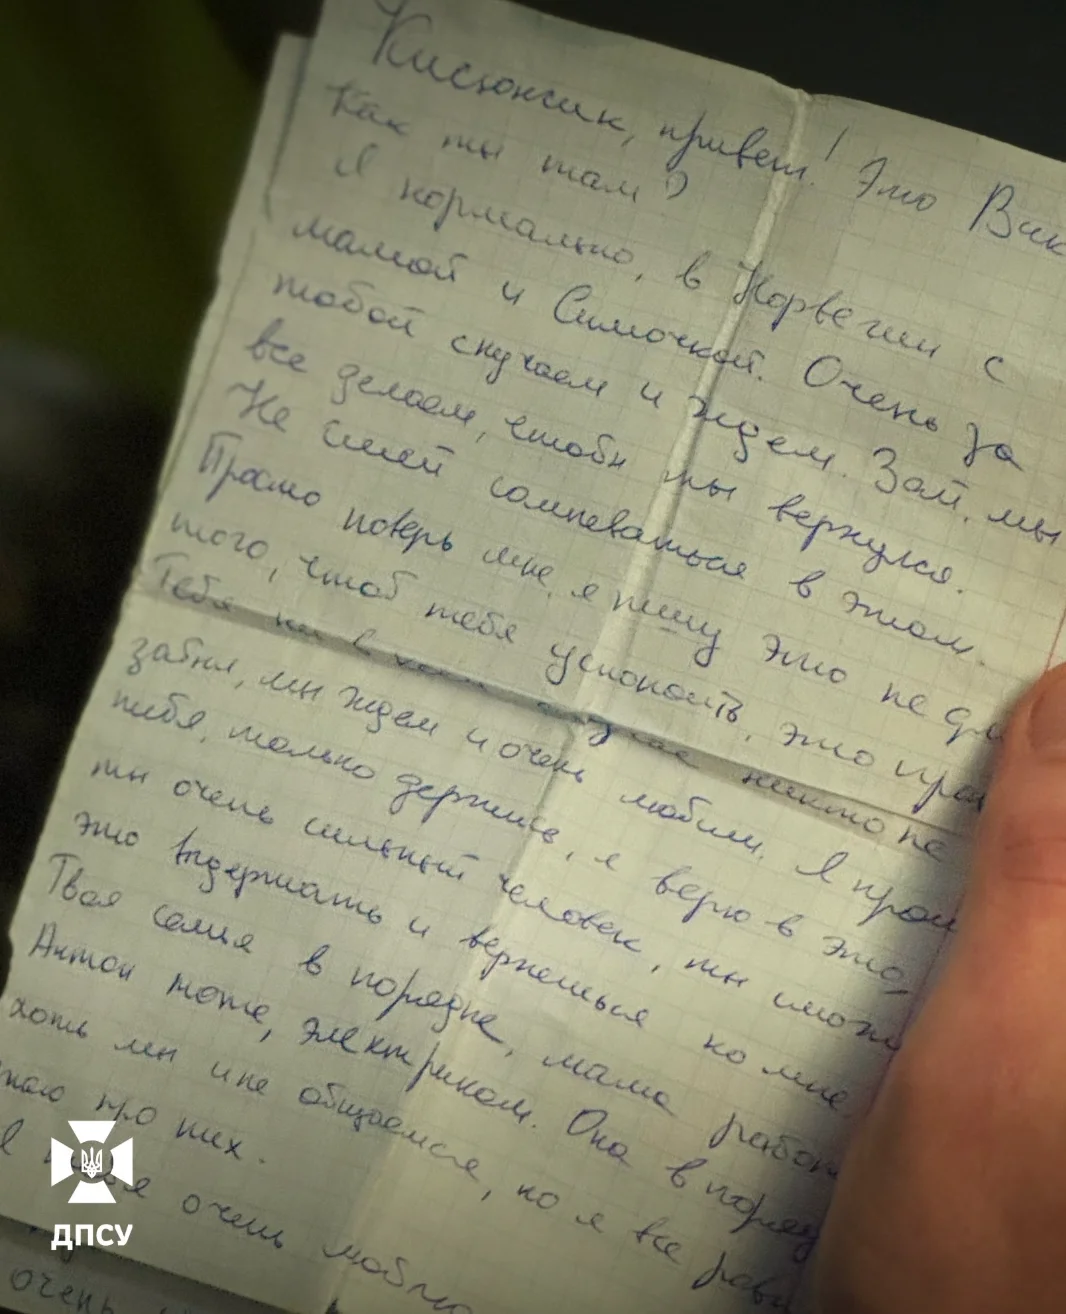 Кисюнсик, привет! Это Вик
Как ты там?
Я нормально, в Норвегии с
мамой и Симочкой. Очень за
тобой скучаем и ждем. Зай, мы
все делаем, чтобы ты вернулся.
Не смей сомневаться в этом.
Просто поверь мне, я пишу это не дл
того, чтоб тебя успокоить, это прав
Тебя ни в коем никто не
забыл, мы ждем и очень любим. Я прош
тебя, только держись, я верю в это,
ты очень сильный человек, ты смож
это выдержать и вернешься ко мне.
Твоя семья в порядке, мама работ
Антон тоже, электриком. Она в поряд
хоть мы и не общаемся, но я все равн
знаю про них.
Я тебя очень люблю
очень
ДПСУ